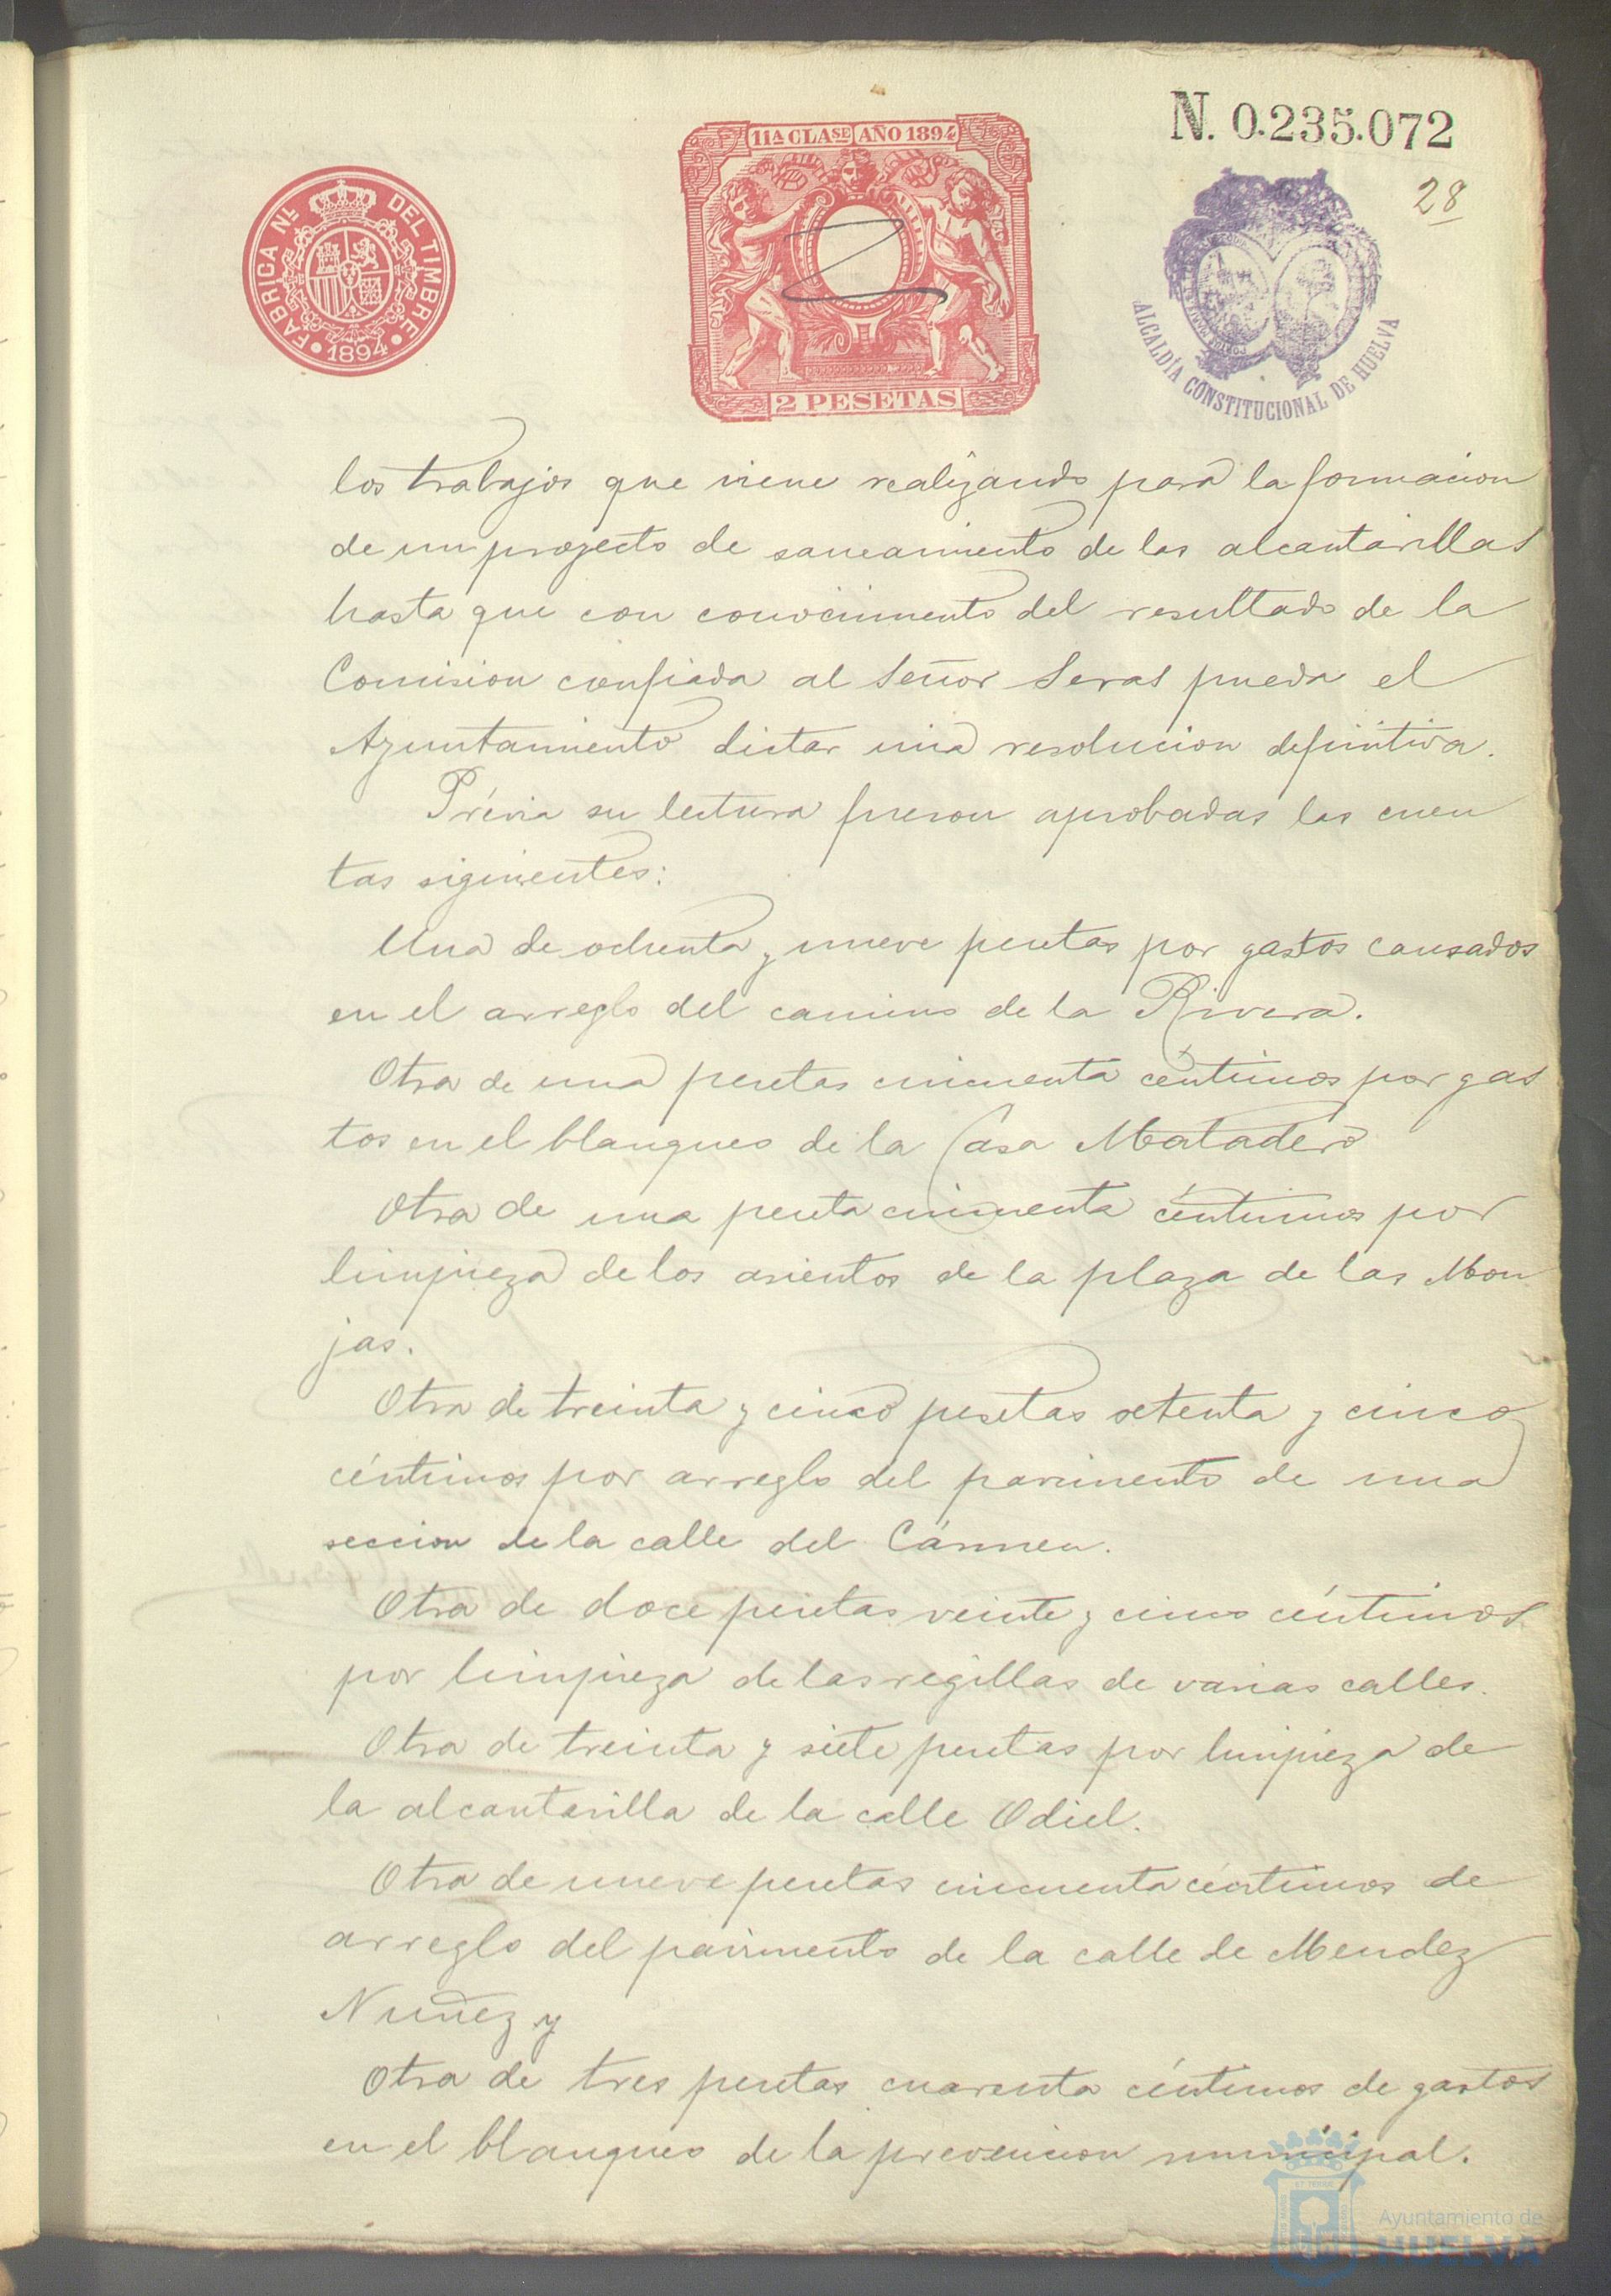 N. 0.235.072
11ª CLASE AÑO 1894
FABRICA NL. DEL TIMBRE
1894
28
2 PESETAS
ALCALDÍA CONSTITUCIONAL DE HUELVA
los trabajos que viene realizando para la formacion
de un proyecto de saneamiento de las alcantarillas
hasta que con conocimiento del resultado de la
Comision confiada al Señor Seras pueda el
Ayuntamiento dictar una resolucion definitiva.
Prévia su lectura fueron aprobadas las cuen
tas siguientes:
Una de ochenta y nueve pesetas por gastos causados
en el arreglo del camino de la Rivera.
Otra de una pesetas cincuenta céntimos por gas
tos en el blanqueo de la Casa Matadero
Otra de una peseta cincuenta céntimos por
limpieza de los asientos de la plaza de las Mon
jas.
Otra de treinta y cinco pesetas setenta y cinco
céntimos por arreglo del pavimento de una
seccion de la calle del Cármen.
Otra de doce pesetas veinte y cinco céntimos
por limpieza de las regillas de varias calles.
Otra de treinta y siete pesetas por limpieza de
la alcantarilla de la calle Odiel.
Otra de nueve pesetas cincuenta céntimos de
arreglo del pavimento de la calle de Mendez
Nuñez y
Otra de tres pesetas cuarenta céntimos de gastos
en el blanqueo de la prevencion municipal.
Ayuntamiento de
HUELVA